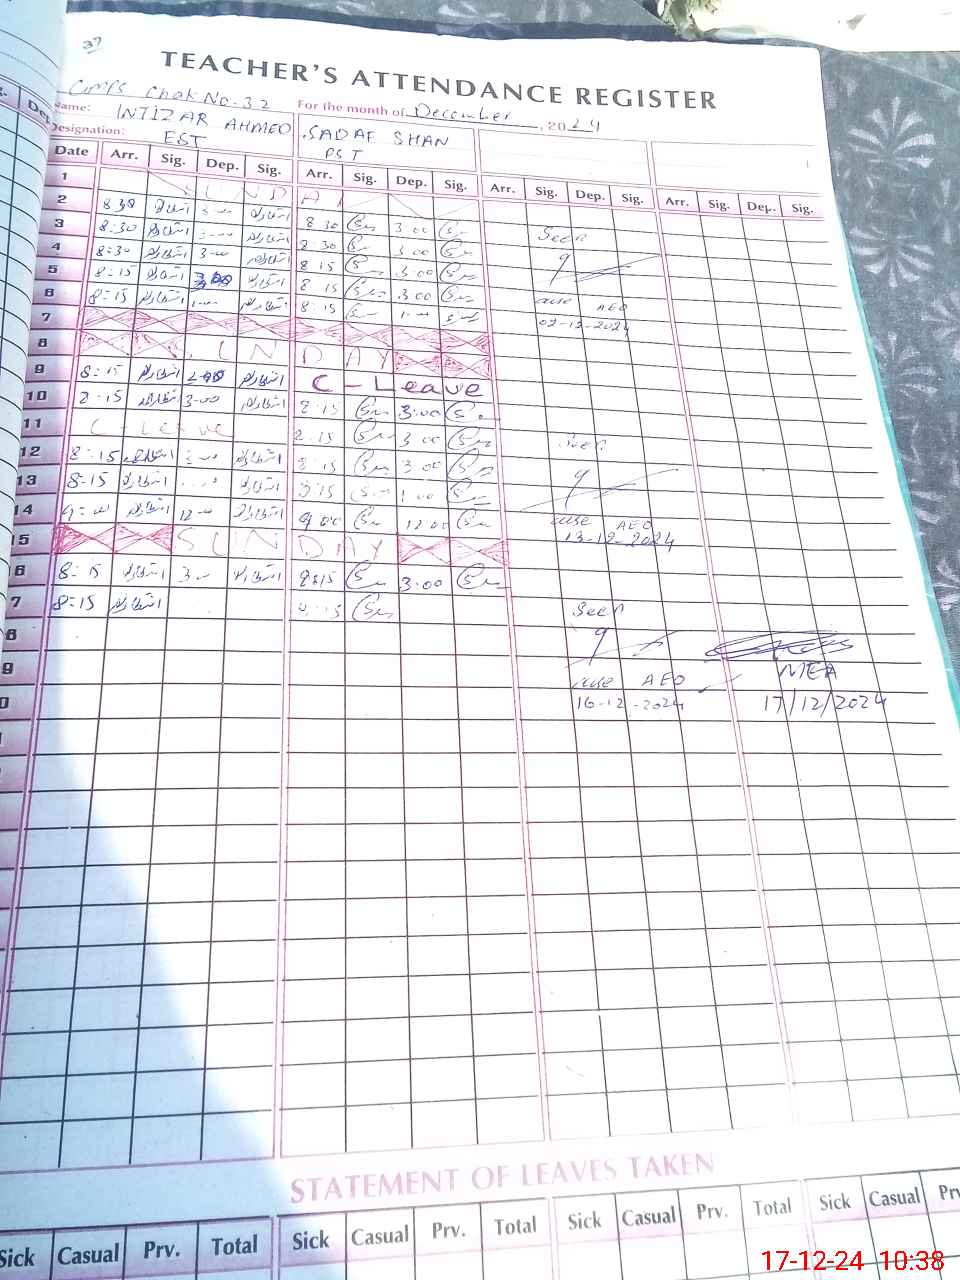 37
TEACHER'S ATTENDANCE REGISTER
Chak No. 32 For the month of December, 2024
Name: INTIZAR AHMED SADAF SHAN
Designation: EST PST
Date Arr. Sig. Dep. Sig. Arr. Sig. Dep. Sig. Arr. Sig. Dep. Sig. Arr. Sig. Dep. Sig.
1 SUNDAY
2 8:30 انتظار انتظار 8 30 3 00
3 8:30 انتظار 3-00 انتظار 8 30 3 00 Seen
4 8:30 انتظار 3-00 انتظار 8 15 3:00
5 8:15 انتظار 3:00 انتظار 8 15 3 00
6 8:15 انتظار انتظار 8:15 AEO
7 02-12-2024
8 SUNDAY
9 8:15 انتظار 2-00 انتظار C-Leave
10 8:15 انتظار 3-00 انتظار 8:15 3:00
11 C-Leave 8:15 3 00 Seen
12 8:15 انتظار انتظار 8:15 3 00
13 8-15 انتظار انتظار 8:15 1 00
14 انتظار 12-00 انتظار 9 00 12 00 AEO
15 SUNDAY 13-12-2024
6 8:15 انتظار 3-00 انتظار 8:15 3:00
7 8:15 انتظار 8:15 Seen
8
9 AEO MEA
0 16-12-2024 17/12/2024
STATEMENT OF LEAVES TAKEN
Sick Casual Prv. Total Sick Casual Prv. Total Sick Casual Prv. Total Sick Casual
17-12-24 10:38